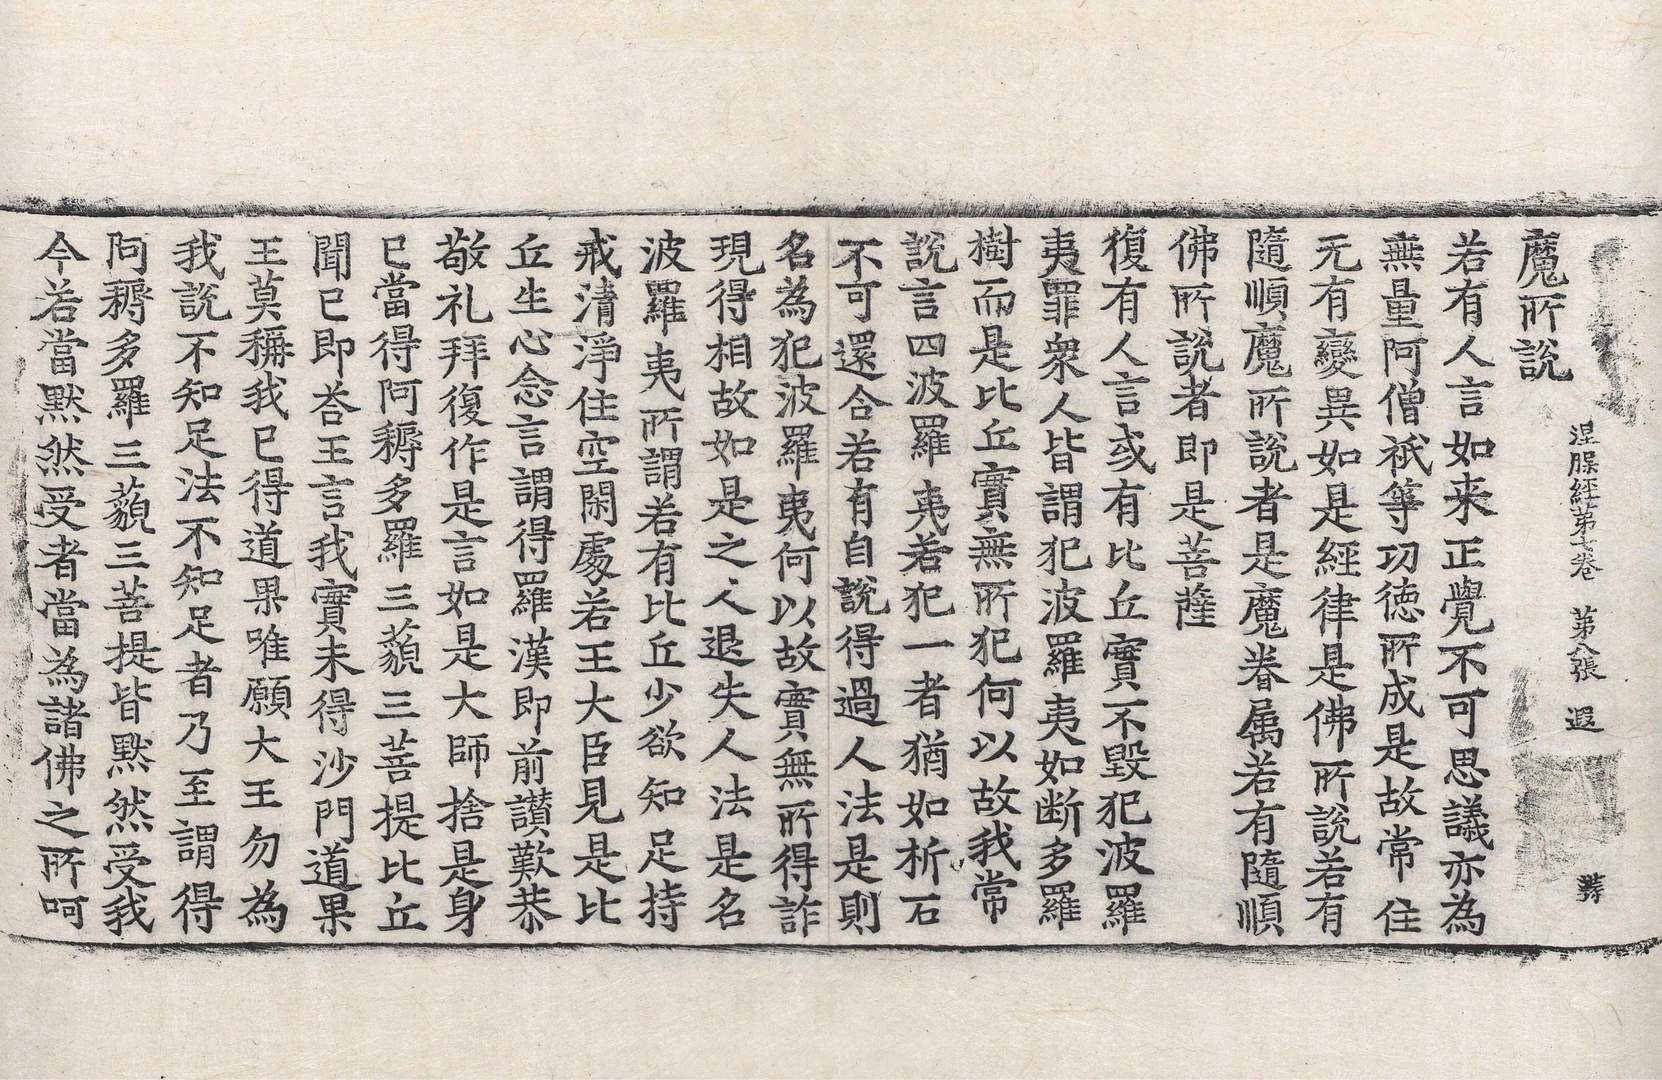 涅槃經第七卷　第八張　遐
魔所說
若有人言如来正覺不可思議亦為
無量阿僧祇等功德所成是故常住
无有變異如是經律是佛所說若有
隨順魔所說者是魔眷属若有隨順
佛所說者即是菩薩
復有人言或有比丘實不毀犯波羅
夷罪衆人皆謂犯波羅夷如断多羅
樹而是比丘實無所犯何以故我常
說言四波羅夷若犯一者猶如析石
不可還合若有自說得過人法是則
名為犯波羅夷何以故實無所得詐
現得相故如是之人退失人法是名
波羅夷所謂若有比丘少欲知足持
戒清淨住空閑處若王大臣見是比
丘生心念言謂得羅漢即前讃歎恭
敬礼拜復作是言如是大師捨是身
已當得阿耨多羅三藐三菩提比丘
聞已即荅王言我實未得沙門道果
王莫稱我已得道果唯願大王勿為
我說不知足法不知足者乃至謂得
阿耨多羅三藐三菩提皆默然受我
今若當默然受者當為諸佛之所呵